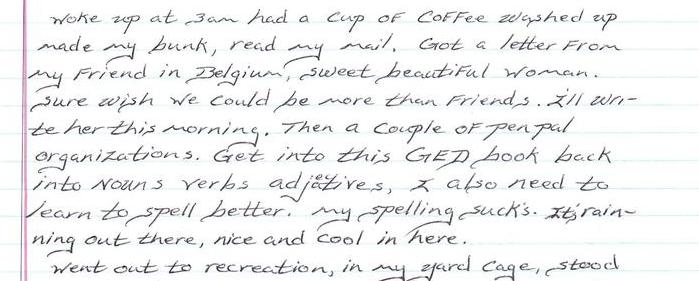 Woke up at 3am had a cup of coffee washed up
made my bunk, read my mail. Got a letter from
my friend in Belgium, sweet beautiful woman.
Sure wish we could be more than friends. I'll wri-
te her this morning. Then a couple of pen pal
organizations. Get into this GED book back
into nouns verbs adjetives, I also need to
learn to spell better. My spelling suck's. It's rain-
ning out there, nice and cool in here.
Went out to recreation, in my yard cage, stood